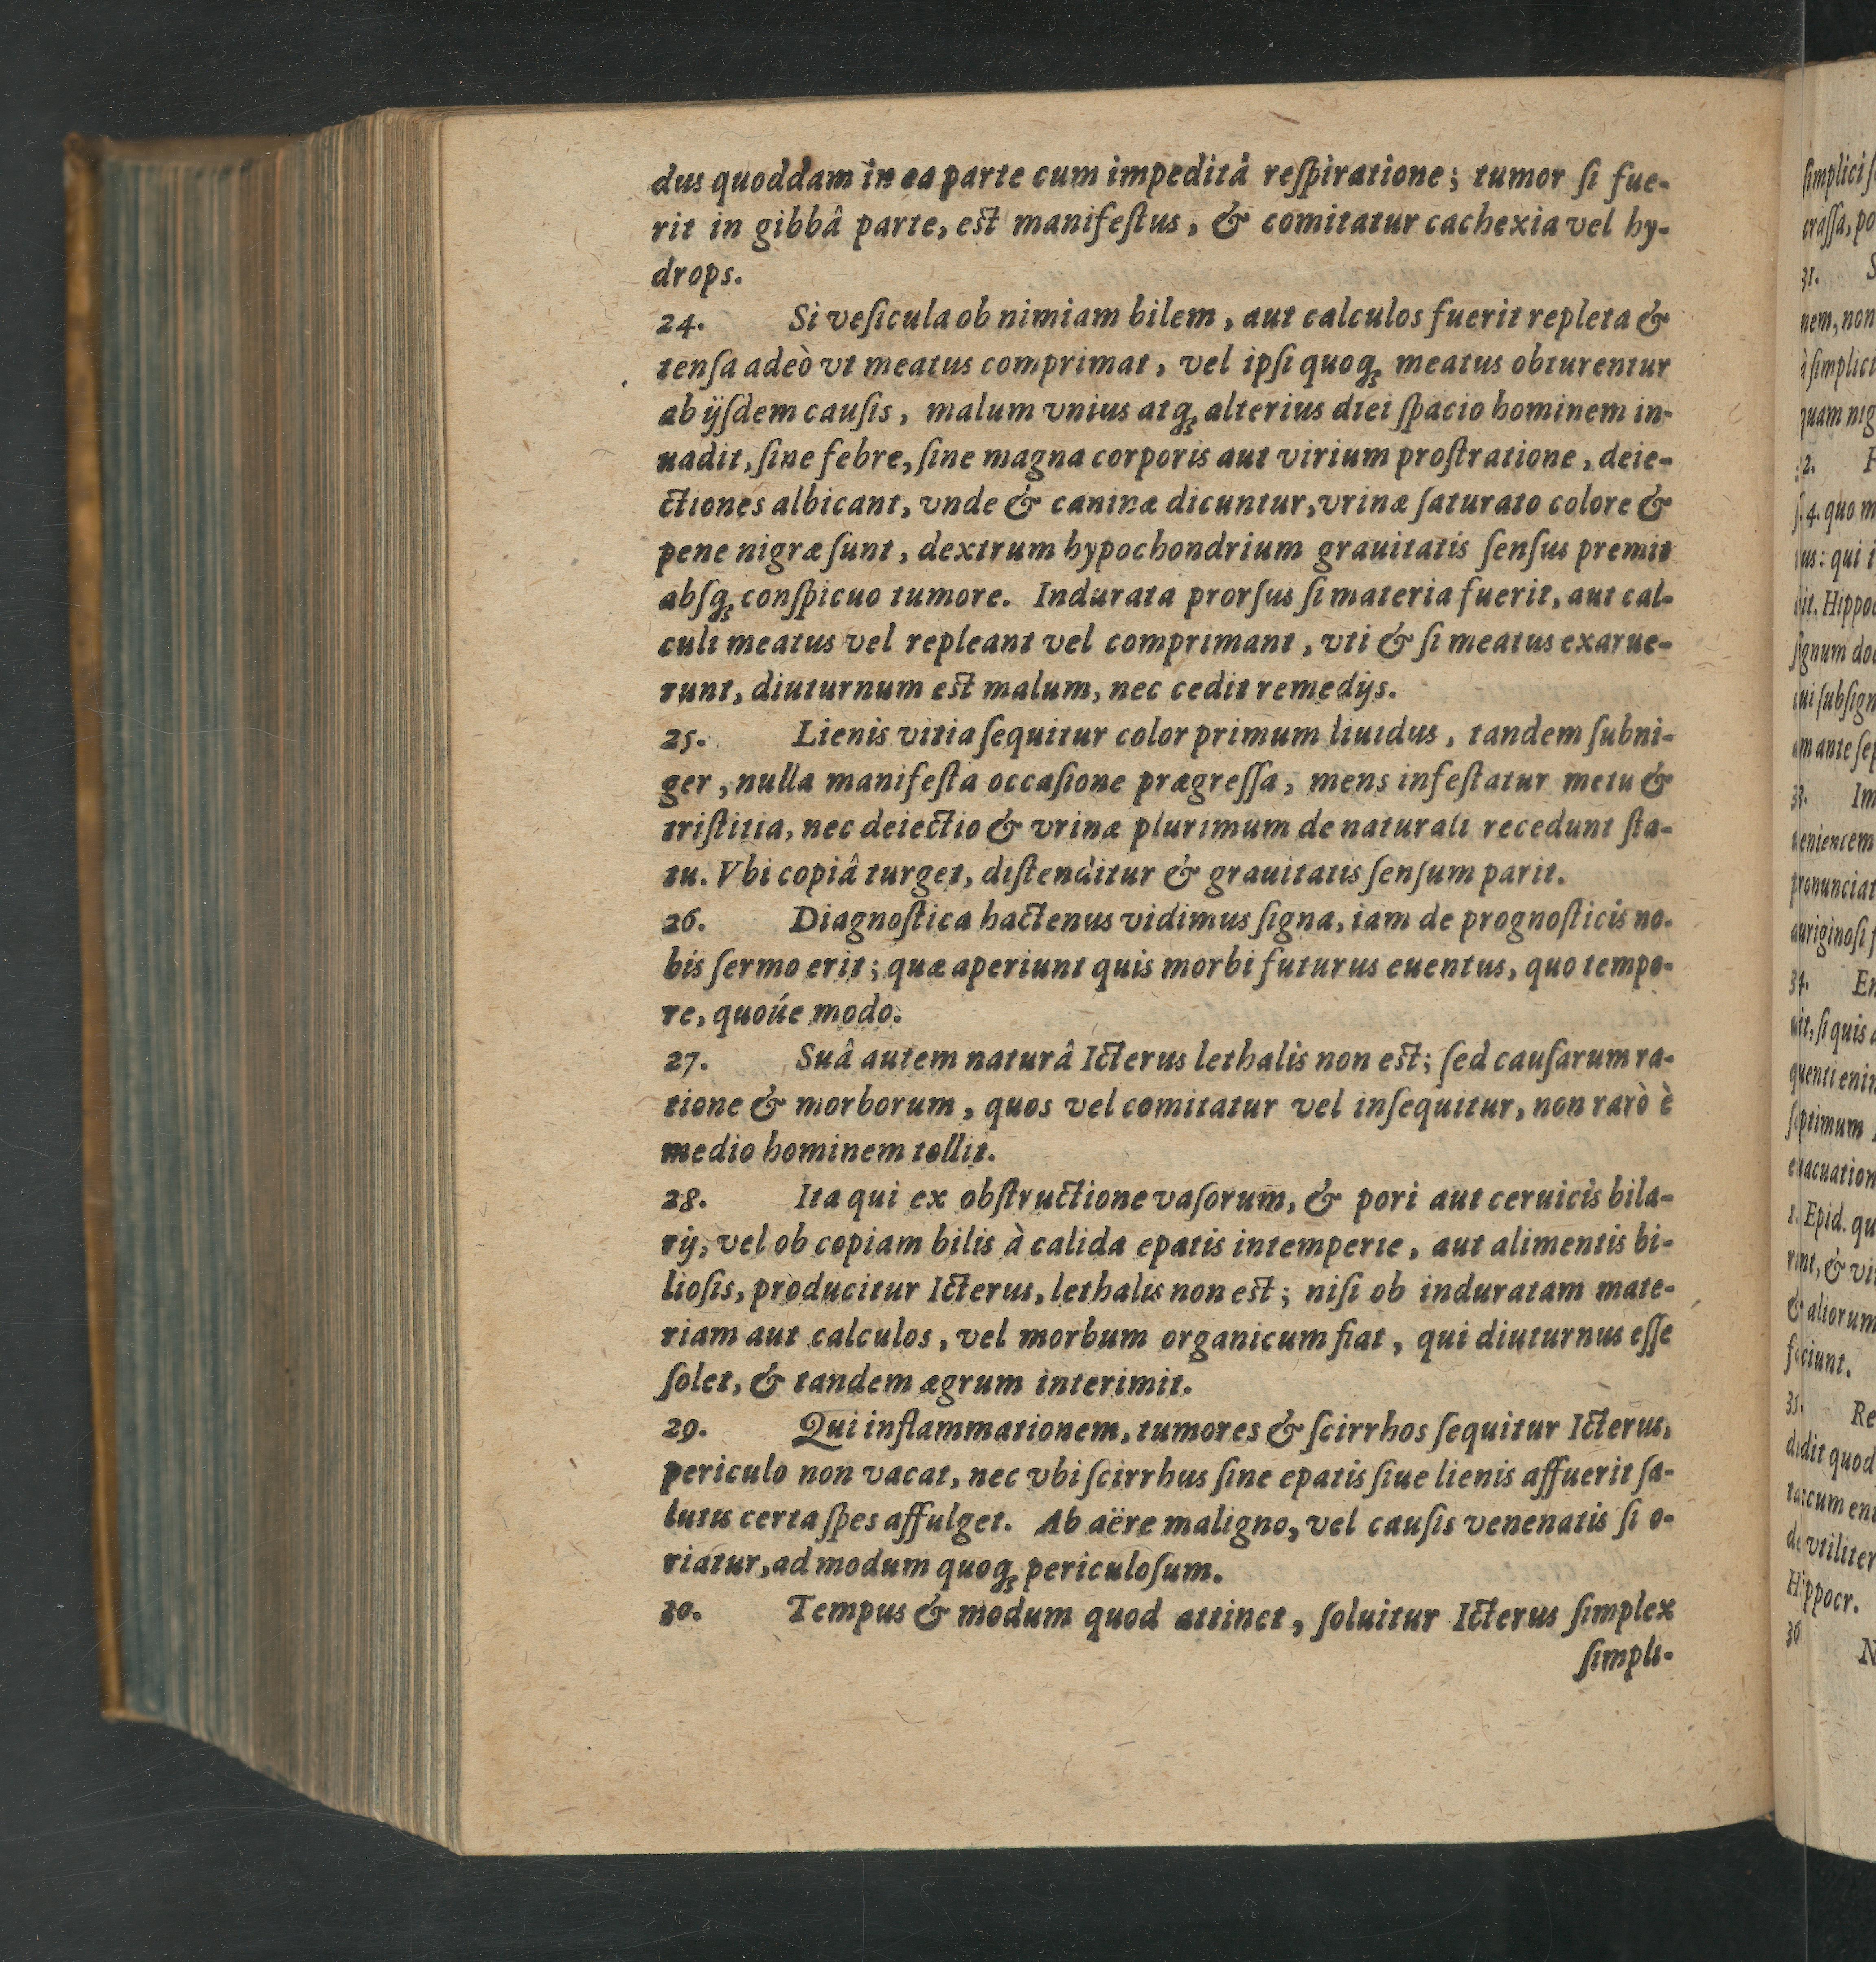 dus quoddam in ea parte cum impeditâ reſpiratione; tumor ſi fue-
rit in gibbâ parte, est manifeſtus, & comitatur cachexia vel hy-
drops.
24. Si veſicula ob nimiam bilem, aut calculos fuerit repleta &
tenſa adeò vt meatus comprimat, vel ipſi quoq; meatus obturentur
ab ijſdem cauſis, malum vnius atq; alterius diei ſpacio hominem in-
uadit, ſine febre, ſine magna corporis aut virium proſtratione, deie-
ctiones albicant, vnde & caninæ dicuntur, vrinæ ſaturato colore &
pene nigræ ſunt, dextrum hypochondrium grauitatis ſenſus premit
abſq; conſpicuo tumore. Indurata prorſus ſi materia fuerit, aut cal-
culi meatus vel repleant vel comprimant, vti & ſi meatus exarue-
runt, diuturnum est malum, nec cedit remedijs.
25. Lienis vitia ſequitur color primum liuidus, tandem ſubni-
ger, nulla manifeſta occaſione prægreſſa, mens infeſtatur metu &
triſtitia, nec deiectio & vrinæ plurimum de naturali recedunt ſta-
tu. Vbi copiâ turget, diſtenditur & grauitatis ſenſum parit.
26. Diagnoſtica hactenus vidimus ſigna, iam de prognoſticis no-
bis ſermo erit; quæ aperiunt quis morbi futurus euentus, quo tempo-
re, quoúe modo.
27. Suâ autem naturâ Icterus lethalis non est; ſed cauſarum ra-
tione & morborum, quos vel comitatur vel inſequitur, non rarò è
medio hominem tollit.
28. Ita qui ex obſtructione vaſorum, & pori aut ceruicis bila-
rij, vel ob copiam bilis à calida epatis intemperie, aut alimentis bi-
lioſis, producitur Icterus, lethalis non est; niſi ob induratam mate-
riam aut calculos, vel morbum organicum fiat, qui diuturnus eſſe
ſolet, & tandem ægrum interimit.
29. Qui inflammationem, tumores & ſcirrhos ſequitur Icterus,
periculo non vacat, nec vbi ſcirrhus ſine epatis ſiue lienis affuerit ſa-
lutis certa ſpes affulget. Ab aëre maligno, vel cauſis venenatis ſi o-
riatur, ad modum quoq; periculoſum.
30. Tempus & modum quod attinet, ſoluitur Icterus ſimplex
ſimpli-
ſimplici
craſſa, po
31. S
nem, non
à ſimplici
quam nig
32.
4. quo m
us: qui i
it. Hippoc
ſignum
ui ſubſign
am ante ſep
33. Im
pronunciat
auriginoſi
34. En
ſi quis
quenti enim
ſeptimum
euacuation
1. Epid. qu
rint, & vi
& aliorum
faciunt.
35. Re
didit quod
vtiliter
Hippocr.
36. N